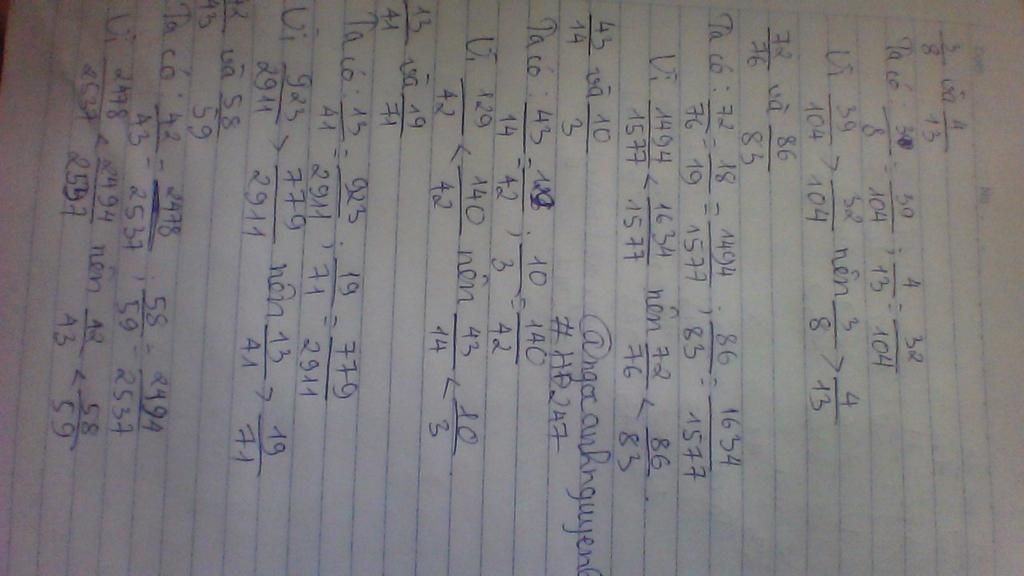 3/8 và 4/13
Ta có: 3/8 = 39/104 ; 4/13 = 32/104
Vì 39/104 > 32/104 nên 3/8 > 4/13
72/76 và 86/83
Ta có: 72/76 = 18/19 = 1494/1577 ; 86/83 = 1634/1577
Vì 1494/1577 < 1634/1577 nên 72/76 < 86/83.
@ngocanhnguyen
43/14 và 10/3 #HĐ247
Ta có: 43/14 = 129/42 ; 10/3 = 140/42
Vì 129/42 < 140/42 nên 43/14 < 10/3
13/41 và 19/71
Ta có: 13/41 = 923/2911 ; 19/71 = 779/2911
Vì 923/2911 > 779/2911 nên 13/41 > 19/71
42/43 và 58/59
Ta có: 42/43 = 2478/2537 ; 58/59 = 2494/2537
Vì 2478/2537 < 2494/2537 nên 42/43 < 58/59